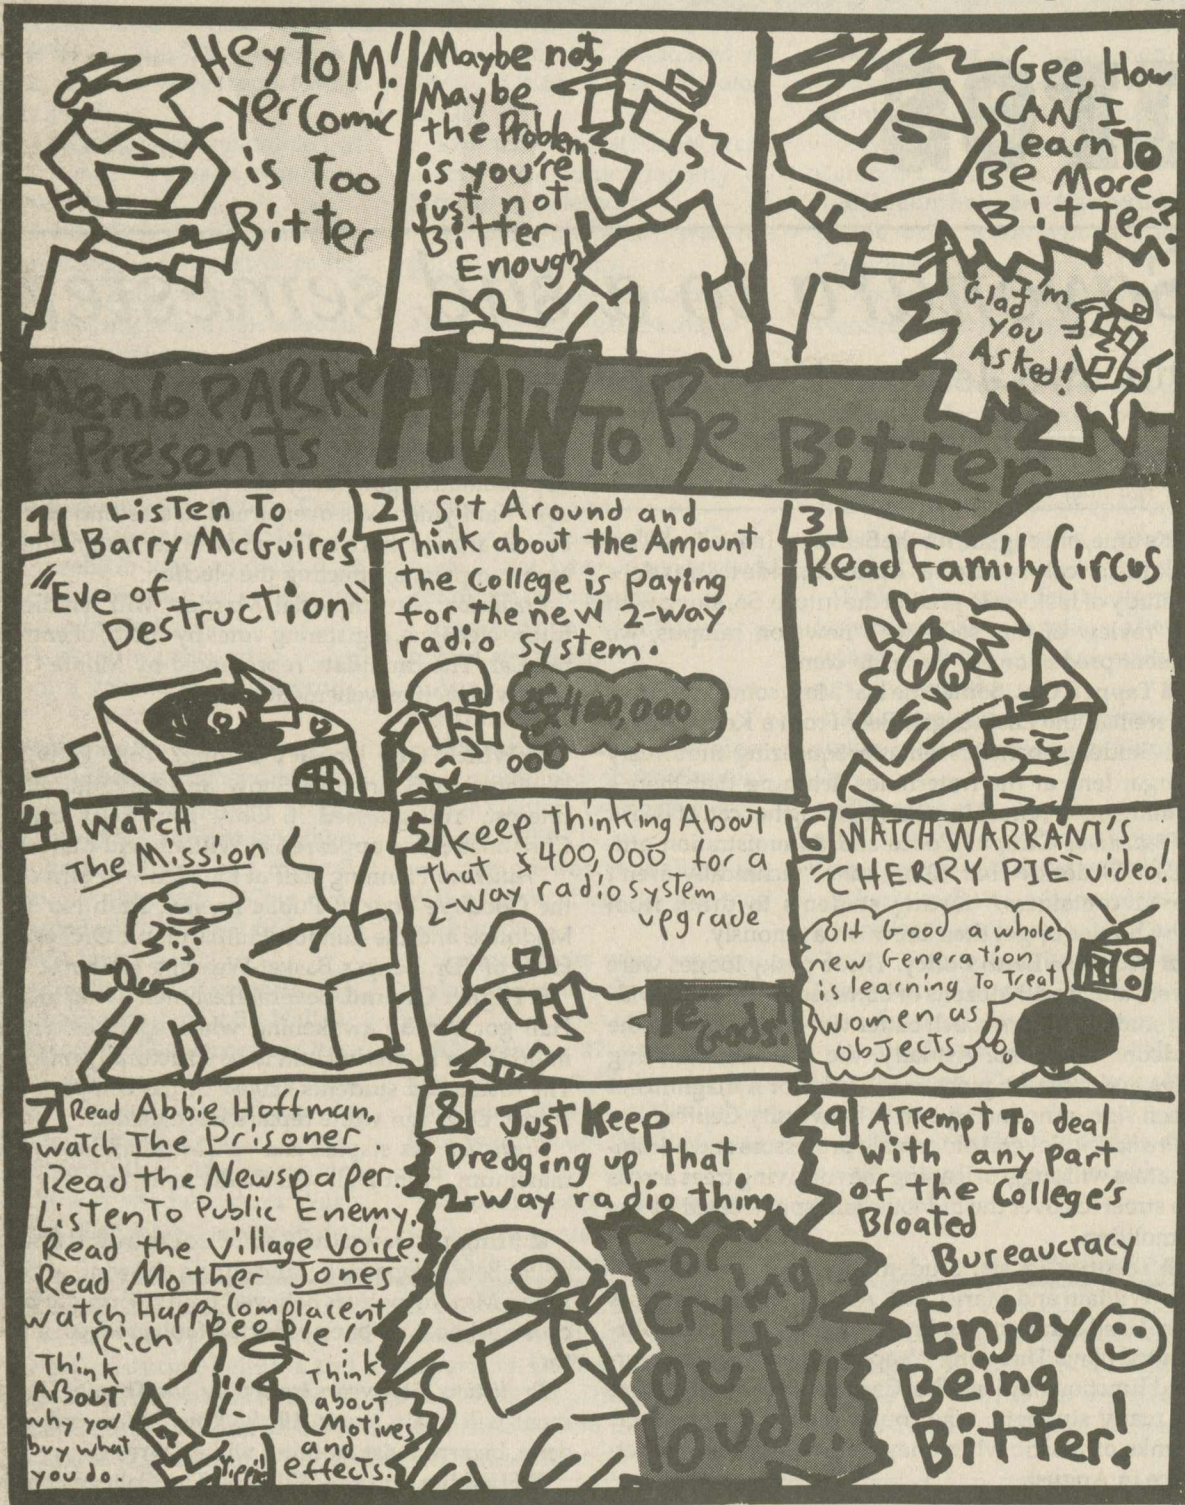 Hey Tom!
yer Comic
is Too
Bitter
Maybe not,
Maybe
the Problem
is you're
just not
Bitter
Enough!
Gee, How
CAN I
Learn To
Be More
Bitter?
I'm
Glad
you
Asked!
Menlo PARK
Presents
HOW To Be Bitter
1 Listen To
Barry McGuire's
"Eve of
Destruction"
2 Sit Around and
Think about the Amount
the College is paying
for the new 2-way
radio system.
$400,000
3
Read Family Circus
4 Watch
The Mission
5 Keep Thinking About
that $400,000 for a
2-way radio system
upgrade
Ye Gods!
6 WATCH WARRANT'S
"CHERRY PIE" video!
Oh Good a whole
new Generation
is learning To Treat
Women as
objects
7 Read Abbie Hoffman.
watch The Prisoner.
Read the Newspaper.
Listen To Public Enemy.
Read the Village Voice.
Read Mother Jones
watch Happy Complacent
Rich people!
Think
About
why you
buy what
you do.
Yippie!
Think
about
Motives
and
effects.
8 Just Keep
Dredging up that
2-way radio thing
For
crying
out
loud!!
9 Attempt To deal
with any part
of the College's
Bloated
Bureaucracy
Enjoy
Being
Bitter!